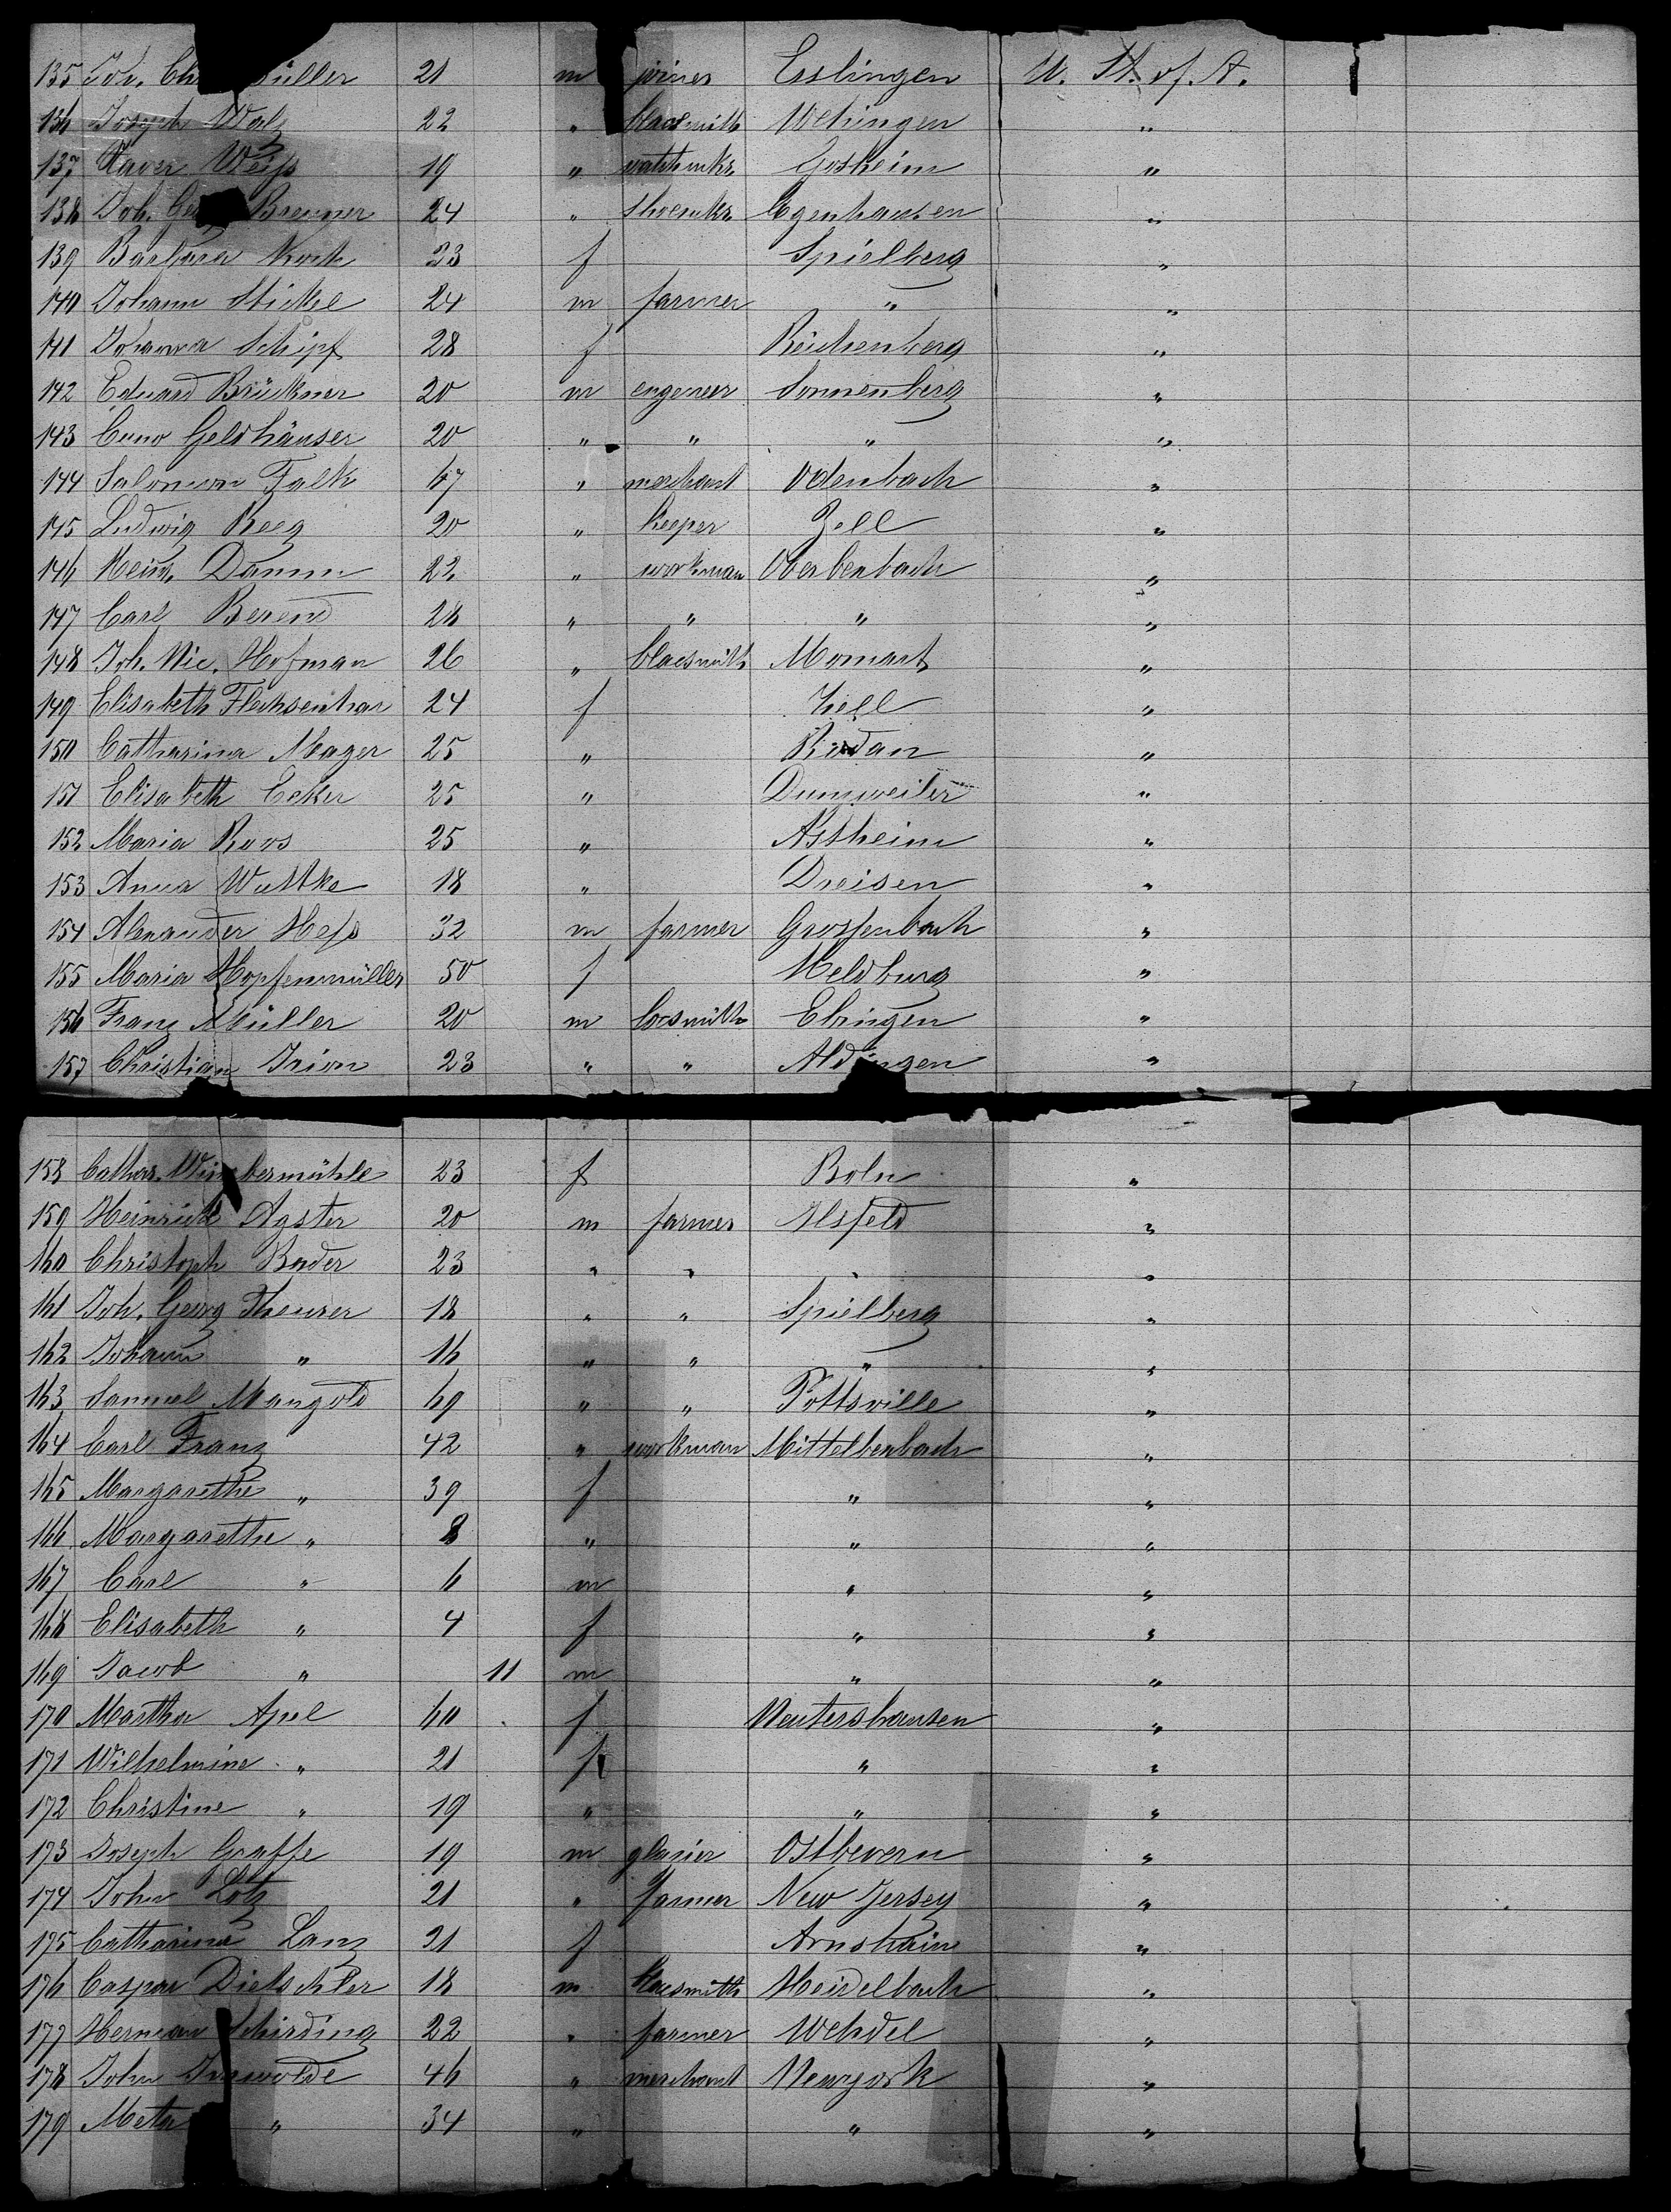 135 Joh. Ch üller 21 m joiner Esslingen U. St. of A.
136 Joseph Walz 22 " blacsmith Wehingen "
137 Xaver Weiss 19 " watchmkr. Gosheim "
138 Joh. Ge Brenner 24 " shoemkr. Egenhausen "
139 Barbara Kock 23 f Spielberg "
140 Johann Stickel 24 m farmer " "
141 Johanna Schipf 28 f Reichenberg "
142 Eduard Brückner 20 m engeneer Sonnenberg "
143 Cuno Geldhäuser 20 " " " "
144 Salomon Falk 67 " merchant Odenbach "
145 Ludwig Reeg 20 " keeper Zell "
146 Heinr. Damm 22 " workman Oberbenbach "
147 Carl Berend 28 " " " "
148 Joh. Nic. Hofman 26 " blacsmith Momart "
149 Elisabeth Flechsenhar 24 f Kell "
150 Catharina Mager 25 " "
151 Elisabeth Ecker 25 " Dunzweiler "
152 Maria Roos 25 " Astheim "
153 Anna Wuttke 18 " Dreisen "
154 Alexander Hess 32 m farmer Grossenbach "
155 Maria Hopfenmüller 50 f Heldburg "
156 Franz Müller 20 m locsmith Ebingen "
157 Christian Irion 23 " " Aldingen "
158 Cathar. Wimbermühle 23 f Boln "
159 Heinrich Agster 20 m farmer Ilsfeld "
160 Christoph Bader 23 " " " "
161 Joh. Georg Theurer 18 " " Spielberg "
162 Johann " 16 " " " "
163 Samuel Mangold 69 " " Pottsville "
164 Carl Franz 42 " workman Mittelbenbach "
165 Margarethe " 39 f " "
166 Margarethe " 8 " " "
167 Carl " 6 m " "
168 Elisabeth " 4 f " "
169 Jacob " 11 m " "
170 Martha Apel 60 f Neutershausen "
171 Wilhelmine " 21 f " "
172 Christine " 19 " " "
173 Joseph Graffe 19 m glasier Ostbevern "
174 John Lotz 21 " farmer New Jersey "
175 Catharina Lanz 21 f Arnshain "
176 Caspar Dietschler 18 m blacsmith Heidelbach "
177 Herman Schirding 22 " farmer Wehdel "
178 John wolde 46 " merchant Newyork "
179 Meta " 34 " " "